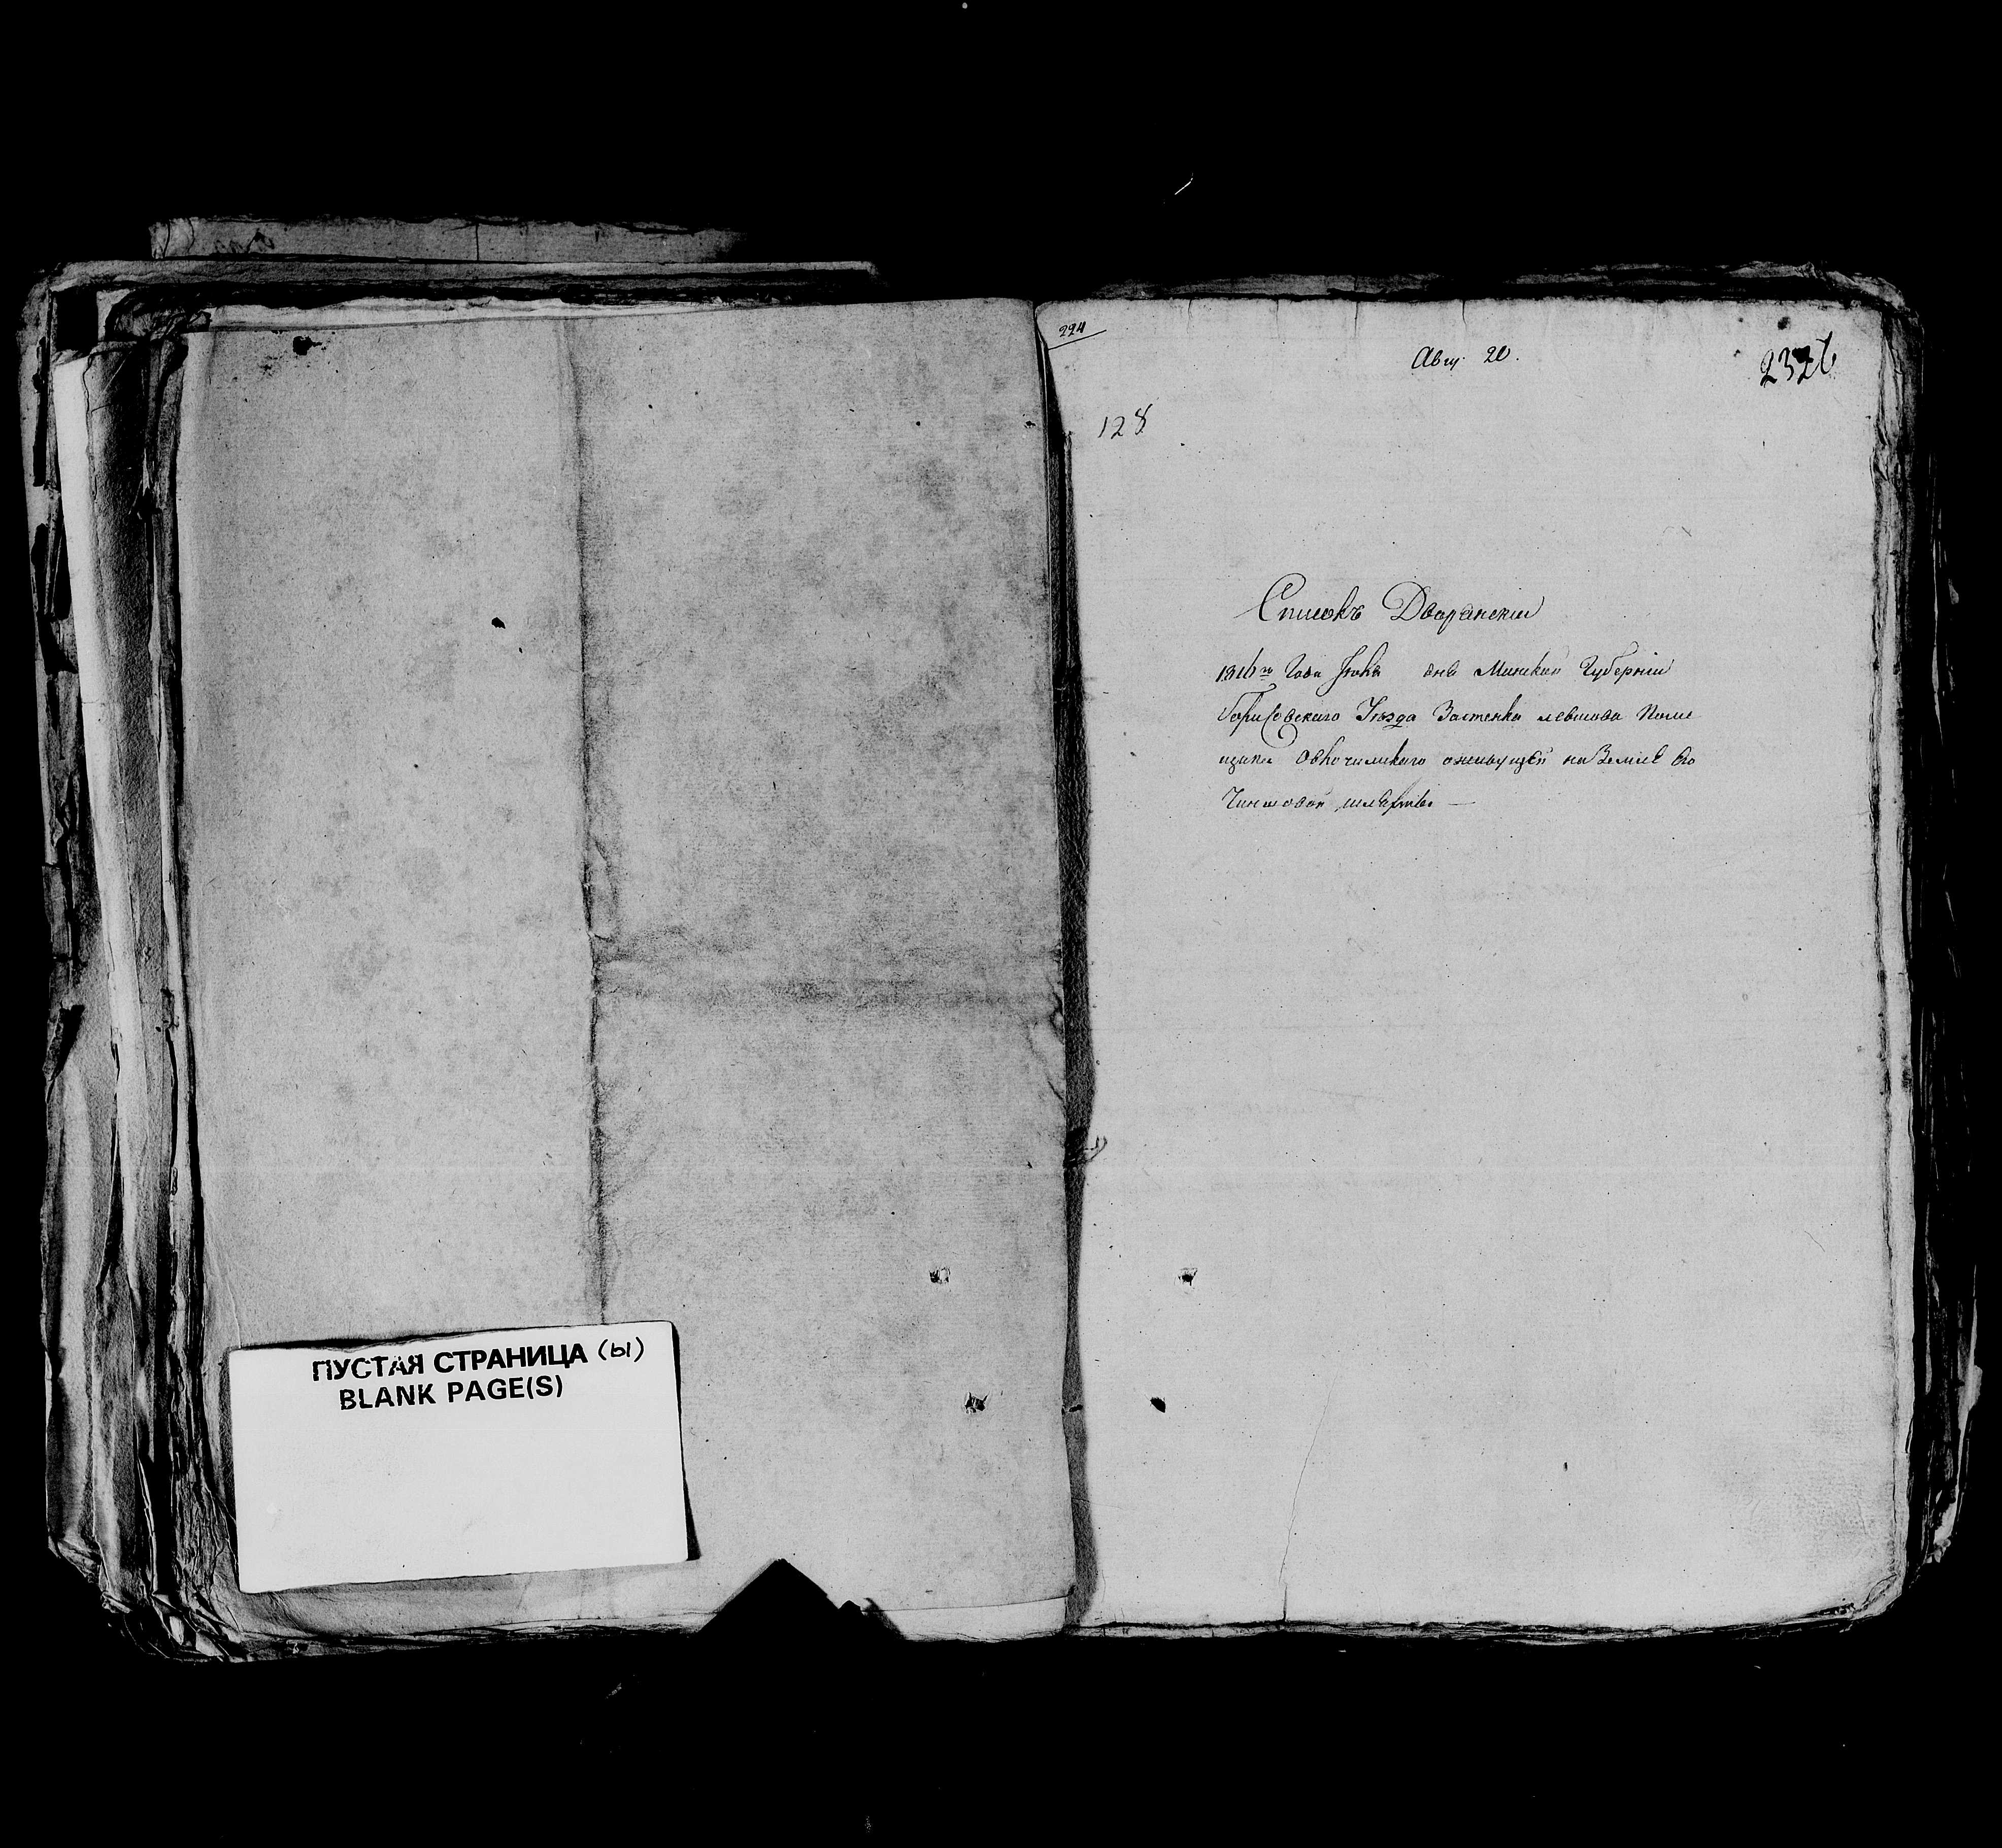 ПУСТАЯ СТРАНИЦА (Ы)
BLANK PAGE(S)
224
Авгу. 20.
128
Списокъ Дворянскій
1816го Года дня Минской Губерніи
Борисовскаго Уѣзда Застенка Помѣ
щика оживущей на Землѣ его
Чиншовой шляхты —